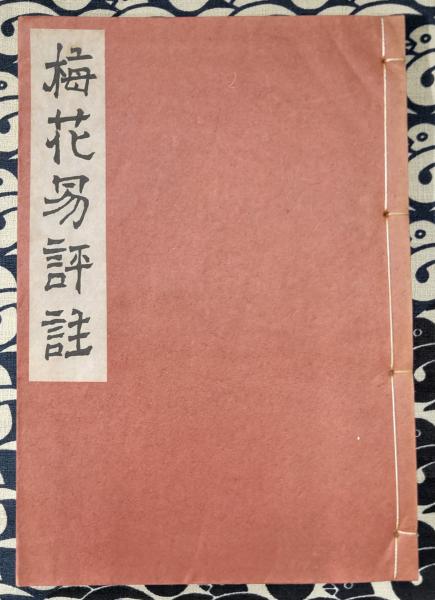 梅花易評註